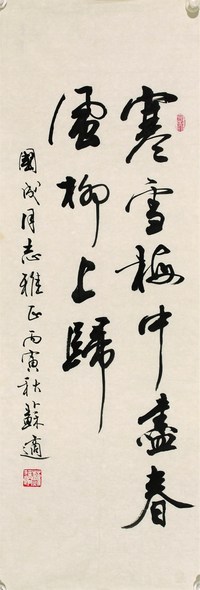 寒雪梅中盡春
風柳上歸
國成同志雅正丙寅秋蘇適